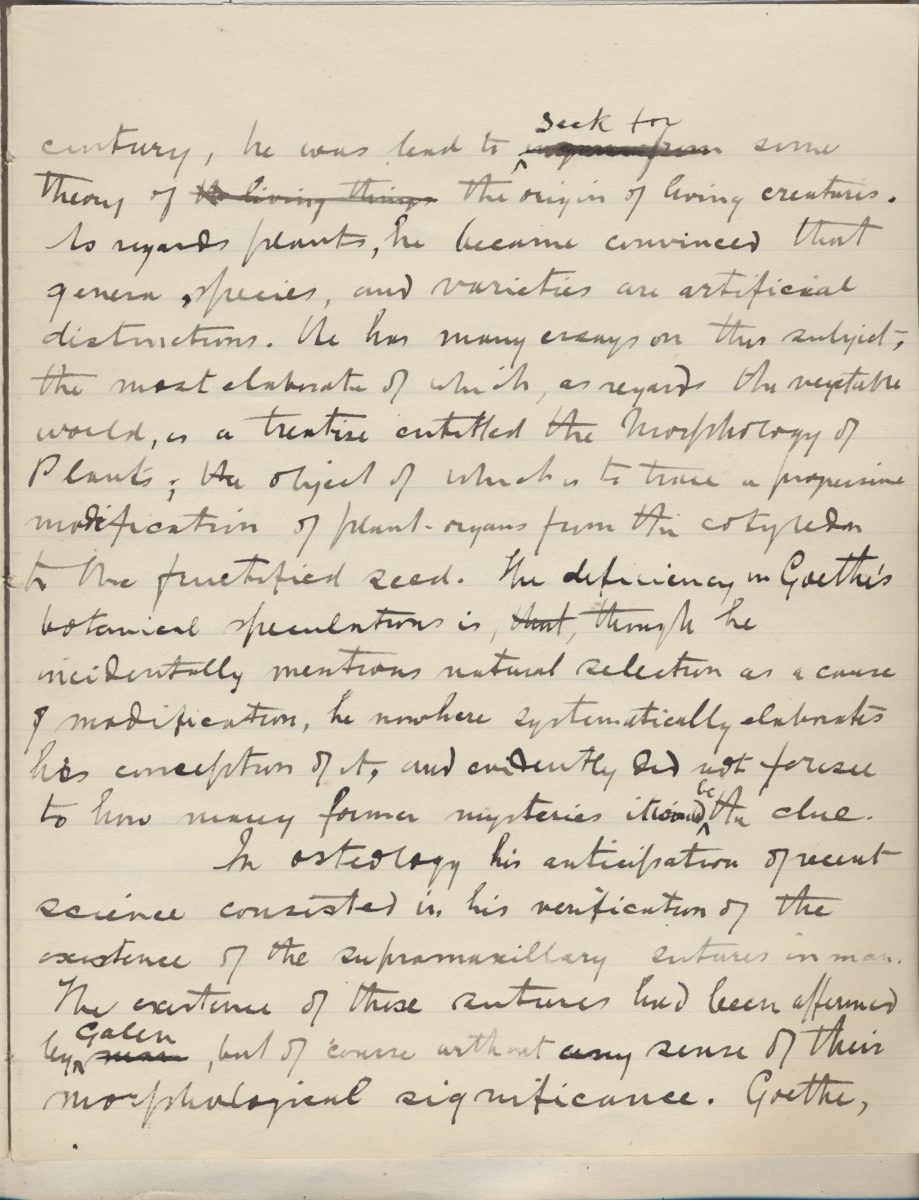 century, he was lead to seek for some
theory of living things the origin of living creatures.
As regards plants, he became convinced that
genera, species, and varieties are artificial
distinctions. He has many essays on this subject;
the most elaborate of which, as regards the vegetable
world, is a treatise entitled the Morphology of
Plants; the object of which is to trace a progressive
modification of plant-organs from the cotyledon
to the fructified seed. The deficiency in Goethe's
botanical speculations is, that, though he
incidentally mentions natural selection as a cause
of modification, he nowhere systematically elaborates
his conception of it, and evidently did not foresee
to how many former mysteries it be the clue.
In osteology his anticipation of recent
science consisted in his verification of the
existence of the supramaxillary sutures in man.
The existence of these sutures had been affirmed
by Galen, but of course without any sense of their
morphological significance. Goethe,